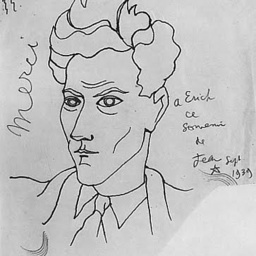 Merci
a Erich
ce
souvenir
de
Jean Sept
1939